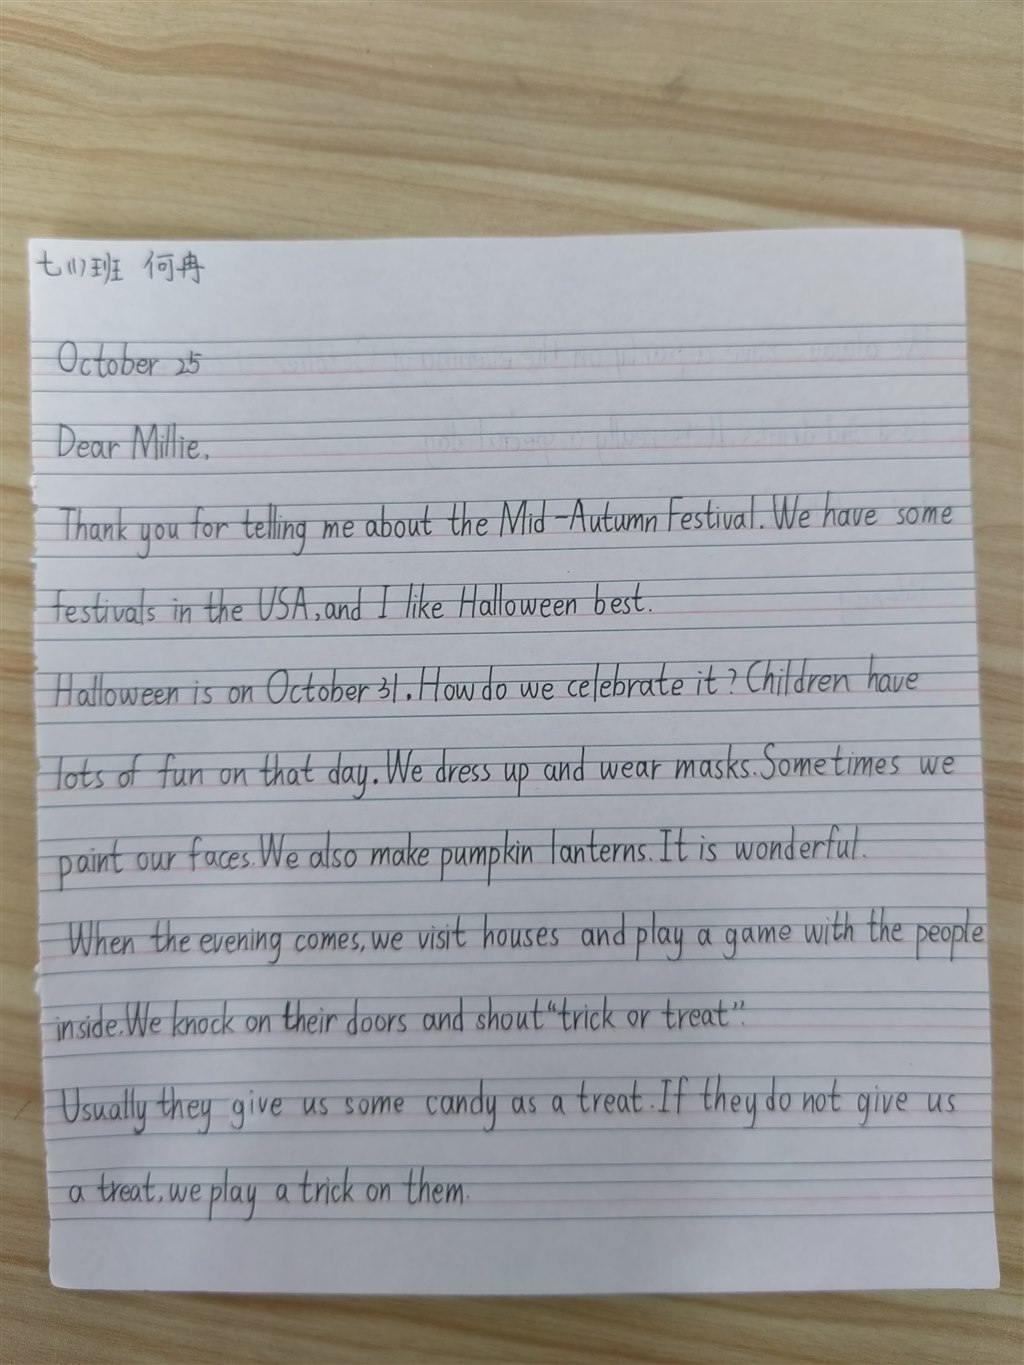 七(1)班 何冉
October 25
Dear Millie,
Thank you for telling me about the Mid-Autumn Festival. We have some
festivals in the USA, and I like Halloween best.
Halloween is on October 31. How do we celebrate it? Children have
lots of fun on that day. We dress up and wear masks. Sometimes we
paint our faces. We also make pumpkin lanterns. It is wonderful.
When the evening comes, we visit houses and play a game with the people
inside. We knock on their doors and shout "trick or treat".
Usually they give us some candy as a treat. If they do not give us
a treat, we play a trick on them.